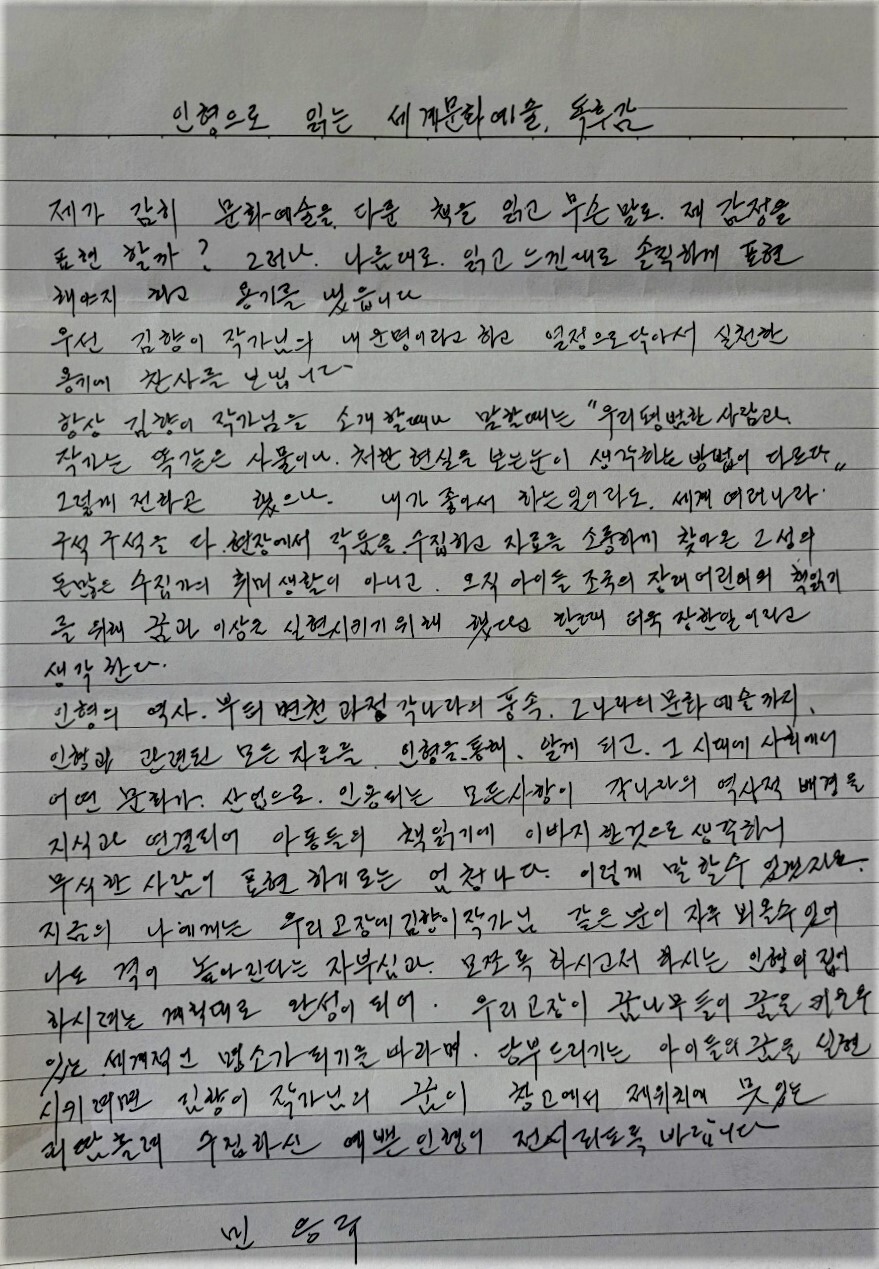 인형으로 읽는 세계문화예술, 독후감
제가 감히 문화예술을 다룬 책을 읽고 무슨 말로. 제 감정을
표현 할까? 그러나. 나름대로. 읽고 느낀대로 솔직하게 표현
해야지 하고 용기를 냈읍니다
우선 김향이 작가님의 내 운명이라고 하고 열정으로 실천한
용기에 찬사를 보냅니다
항상 김향이 작가님을 소개할때나 말할때는 "우리평범한 사람과.
작가는 똑같은 사물이나. 처한 현실을 보는눈이 생각하는 방법이 다르다"
그렇게 전하곤 했으나. 내가 좋아서 하는일이라도. 세계 여러나라
구석 구석을 다. 현장에서 작품을 수집하고 자료를 소중하게 찾아온 그 성의
돈많은 수집가의 취미생활이 아니고. 오직 아이들 조국의 장래 어린이의 책읽기
를 위해 꿈과 이상을 실현시키기위해 했다고 할때 더욱 장한일이라고
생각 한다.
인형의 역사. 부터 변천 과정 각나라의 풍속. 그나라의 문화 예술까지.
인형과 관련된 모든 자료를 인형을 통해. 알게 되고. 그 시대에 사회에서
어떤 문화가. 산업으로. 인용되는 모든사항이 각나라의 역사적 배경을
지식과 연결되어 아동들의 책읽기에 이바지 한것으로 생각하니
무식한 사람이 표현 하기로는 엄청나다. 이렇게 말할수 있겠지요.
지금의 나에게는 우리고장에 김향이작가님 같은분이 자주 뵈올수있어
나도 격이 높아진다는 자부심과. 모쪼록 하시고저 하시는 인형의 집이
하시려는 계획대로 완성이 되어. 우리고장이 꿈나무들이 꿈을 키울수
있는 세계적인 명소가되기를 바라며. 당부드리기는 아이들의 꿈을 실현
시키려면 김향이 작가님의 꿈이 창고에서 제위치에 못있는
수집하신 예쁜인형이 전시되도록 바랍니다
민